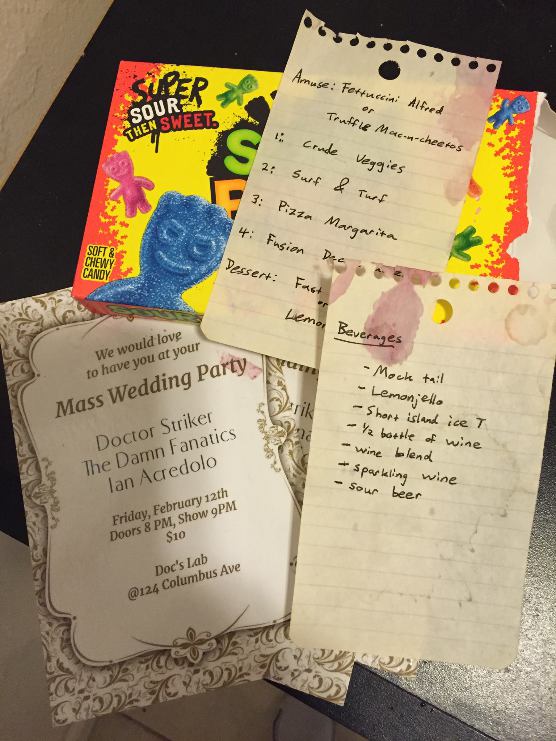 SUPER
SOUR
THEN SWEET.
SOFT &
CHEWY
CANDY
Amuse: Fettuccini Alfred
or
Truffle Mac-n-cheetos
1: Crude Veggies
2: Surf & Turf
3: Pizza Margarita
4: Fusion
Dessert:
or
We would love
to have you at your
Mass Wedding Party
Doctor Striker
The Damn Fanatics
Ian Acredolo
Friday, February 12th
Doors 8 PM, Show 9PM
$10
Doc's Lab
@124 Columbus Ave
Beverages
- Mock tail
- Lemonjello
- Short island ice T
- 1/2 bottle of wine
- wine blend
- sparkling wine
- sour beer